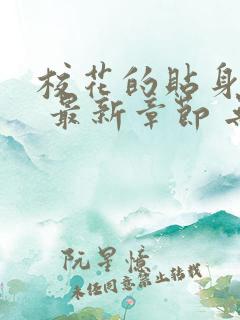 校花的贴身
最新章节
阮星憶
未经同意禁止转载